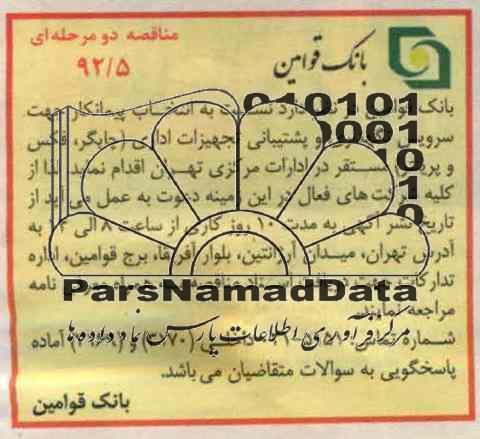 بانک قوامین
مناقصه دو مرحله‌ای
۹۲/۵
بانک قوامین در نظر دارد نسبت به انتخاب پیمانکار جهت
سرویس و پشتیبانی تجهیزات اداری (چاپگر، فکس
و مستقر در ادارات مرکزی تهران اقدام نماید لذا از
کلیه شرکت های فعال در این زمینه دعوت به عمل می آید از
تاریخ نشر آگهی به مدت ۱۰ روز کاری از ساعت ۸ الی ۱۴ به
آدرس تهران، میدان آرژانتین، بلوار آفریقا، برج قوامین، اداره
تدارکات جهت دریافت اسناد مناقصه نامه
مراجعه نمایند.
شماره تماس آماده
پاسخگویی به سوالات متقاضیان می باشد.
بانک قوامین
010101
0001
10
1
0
ParsNamadData
مرکز فرآوری اطلاعات پارس نماد داده‌ها